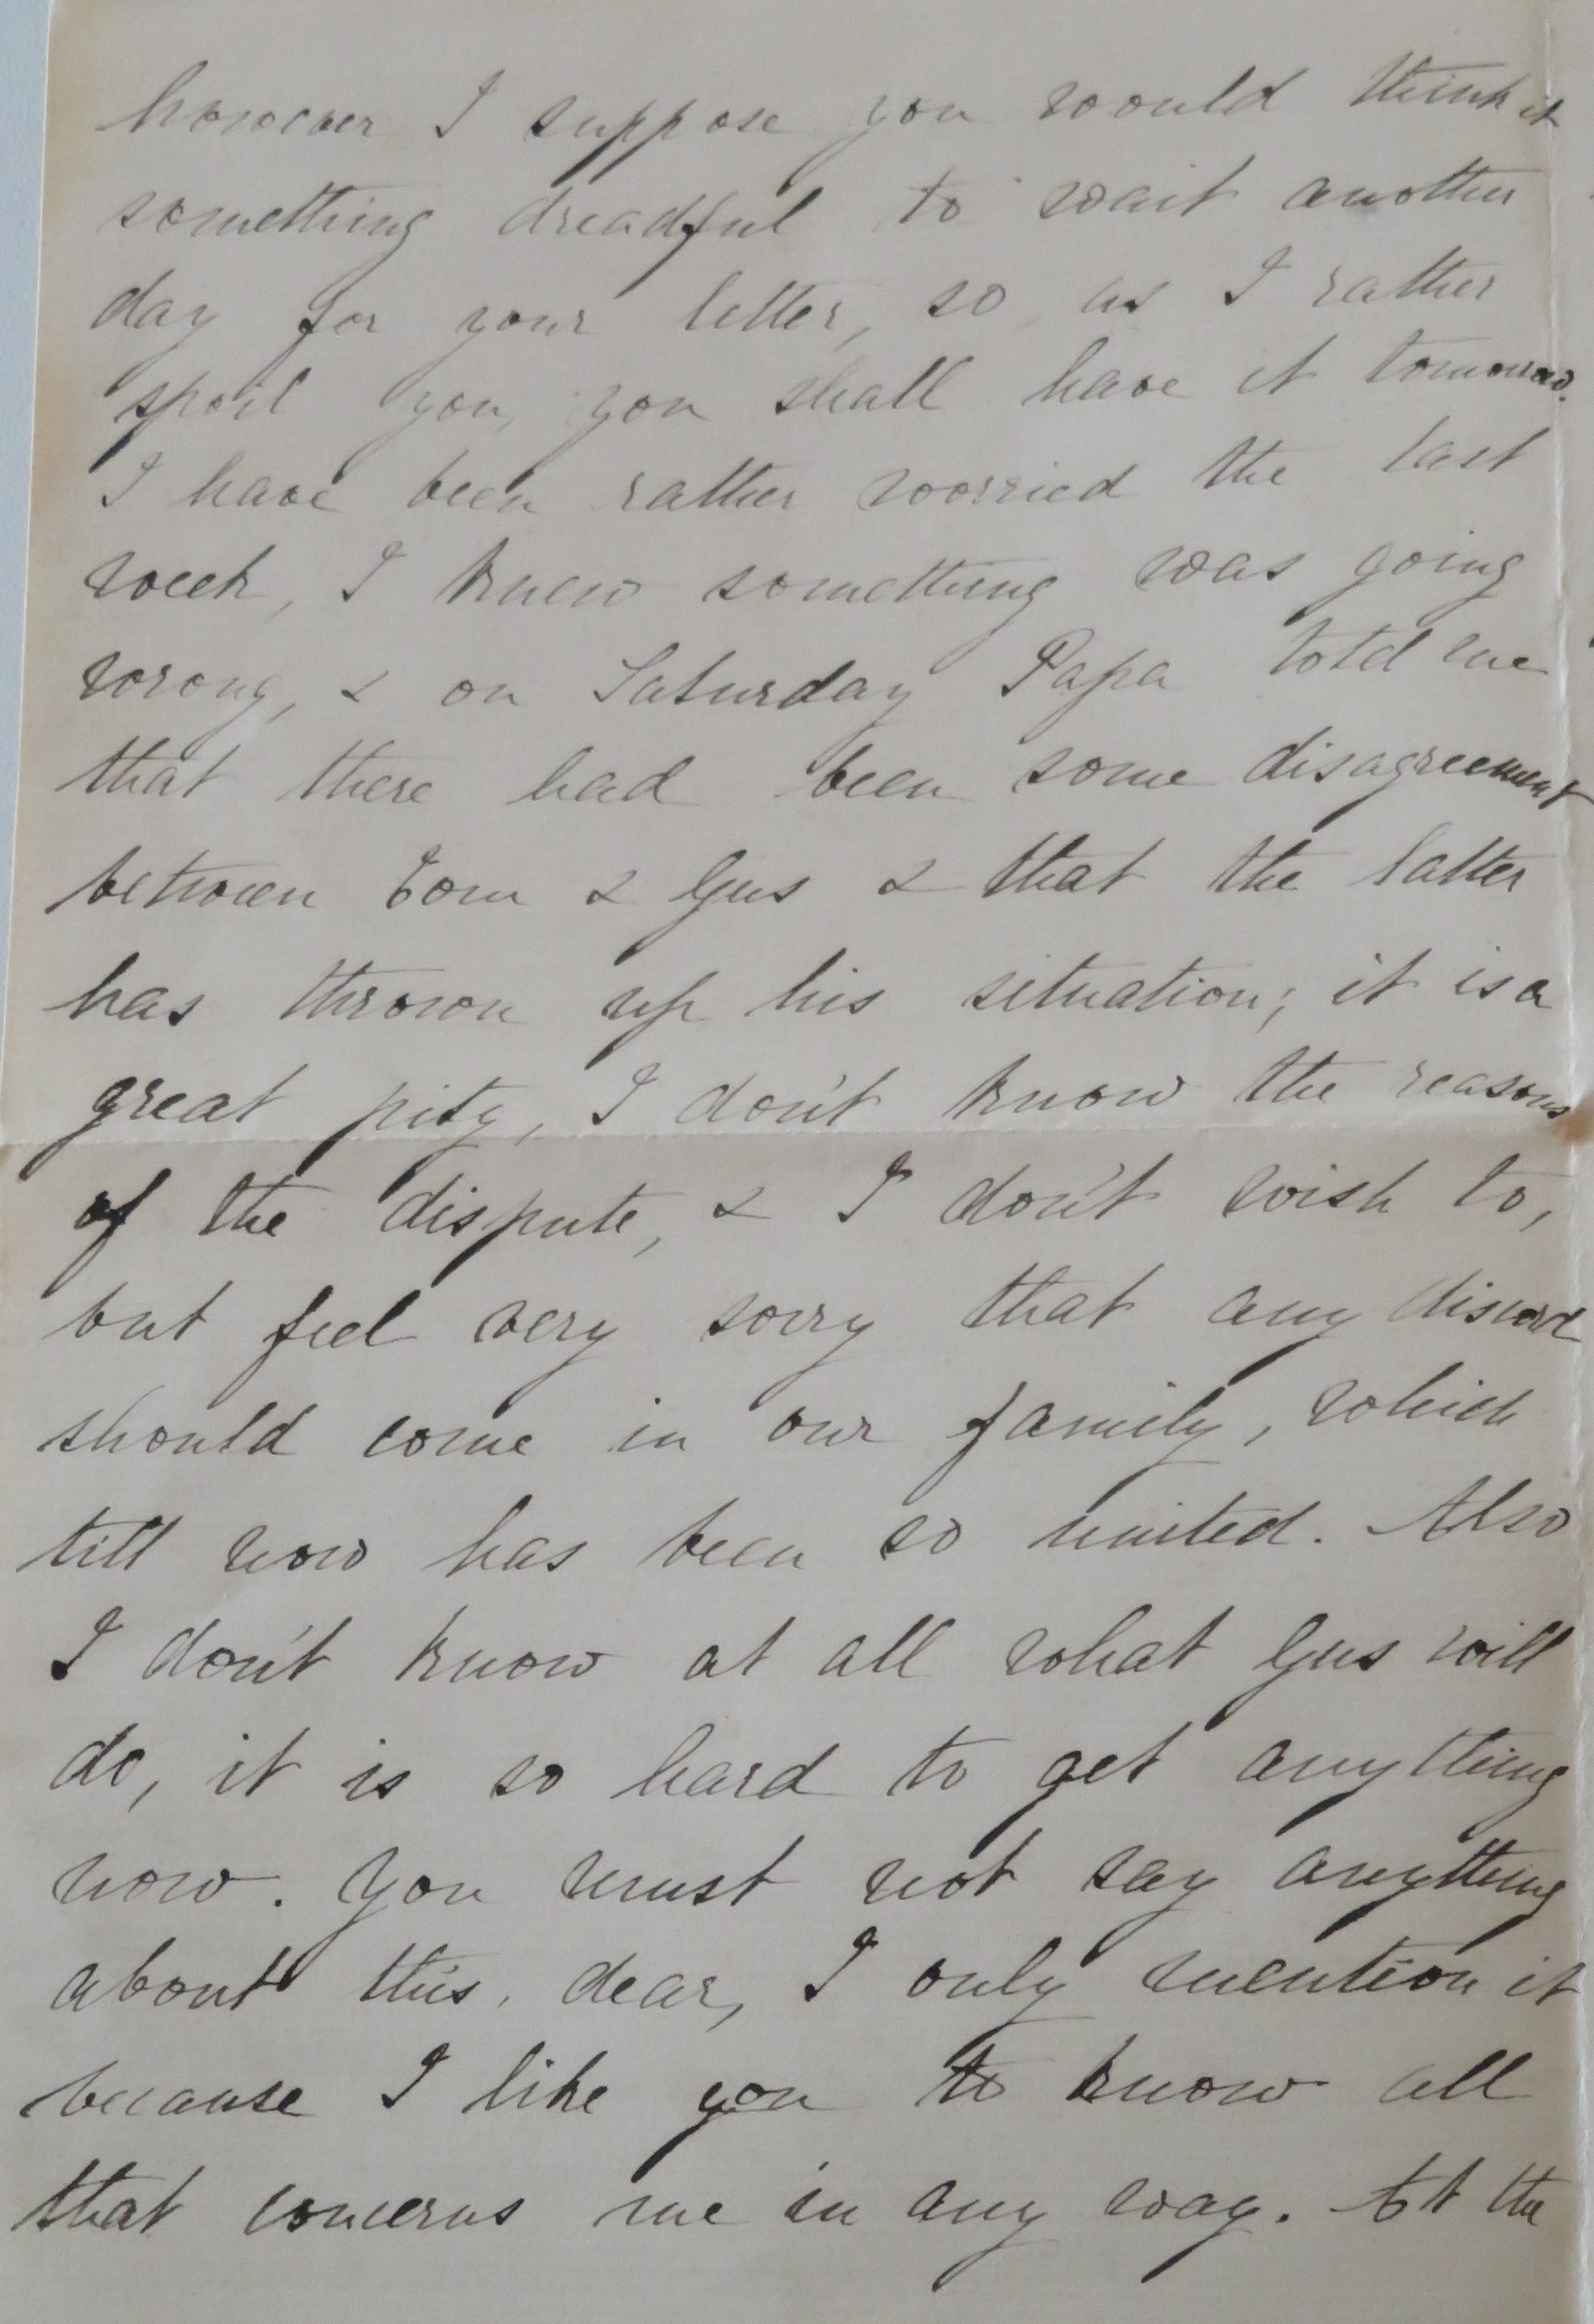 however I suppose you would think it
something dreadful to wait another
day for your letter, so as I rather
spoil you, you shall have it tomorrow.
I have been rather worried the last
week, I knew something was going
wrong, & on Saturday Papa told me
that there had been some disagreement
between Tom & Gus & that the latter
has thrown up his situation; it is a
great pity, I don't know the reasons
of the dispute, & I don't wish to,
but feel very sorry that any discord
should come in our family, which
till now has been so united. Also
I don't know at all what Gus will
do, it is so hard to get anything
now. You must not say anything
about this, dear, I only mention it
because I like you to know all
that concerns me in any way. At the